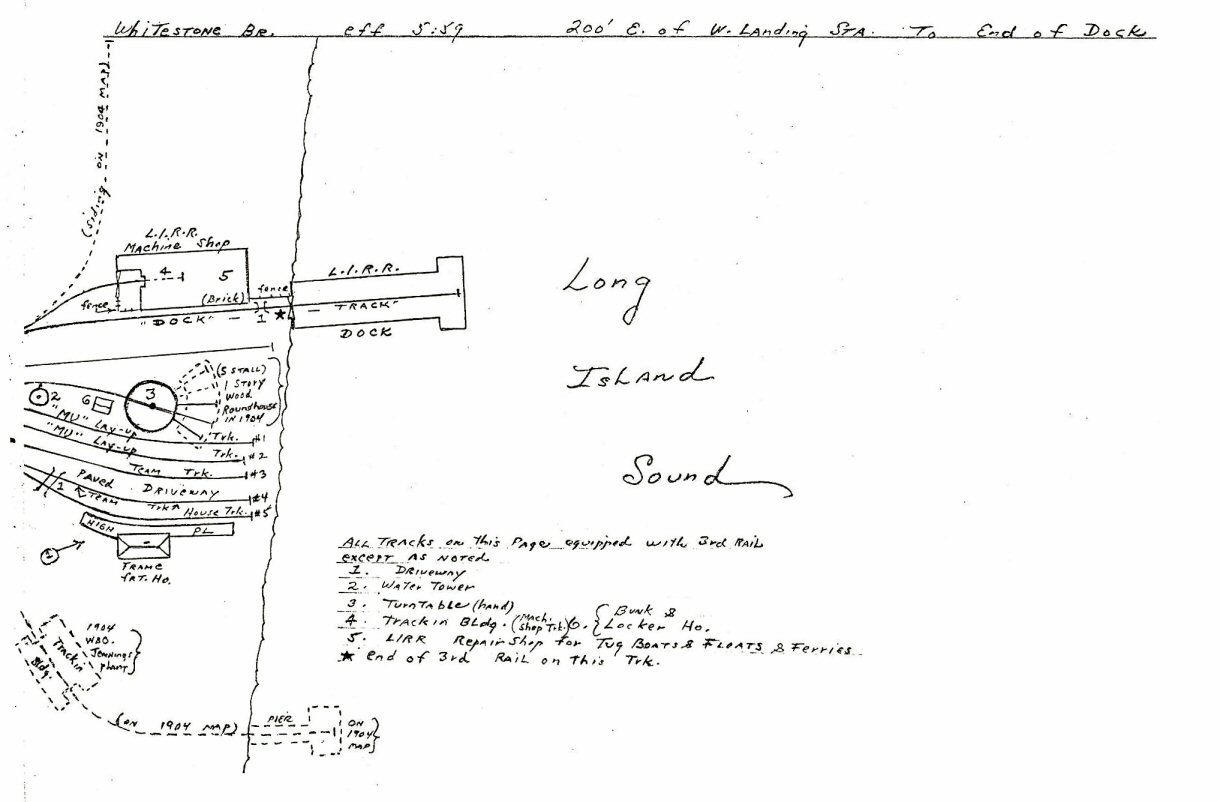 Whitestone Br. eff 5:59 200' E. of W. Landing Sta. To End of Dock
(Siding - on - 1904 MAP)
L.I.R.R.
Machine Shop
4
5
(Brick)
fence
fence
"DOCK" - 1 ★ - TRACK"
L.I.R.R.
DOCK
Long
Island
Sound
(5 STALL)
1 STORY
Wood
Roundhouse
IN 1904
3
2
6
"MU" LAY-UP Trk. #1
"MU" LAY-UP Trk. #2
TEAM Trk. #3
PAVED DRIVEWAY
1
TEAM Trk #4
House Trk. #5
HIGH PL
1
FRAME
FRT. Ho.
ALL TRACKS on this Page equipped with 3rd RAIL
except AS NOTED
1. DRIVEWAY
2. WATER TOWER
3. TURNTABLE (hand)
4. Track in Bldg. (Mach. Shop Trk.) 6. { Bunk & Locker Ho.
5. LIRR Repair Shop for Tug Boats & Floats & Ferries
★ end of 3rd RAIL on this Trk.
1904
Jennings
plant
Track in
Bldg.
(ON 1904 MAP)
PIER
ON
1904
MAP